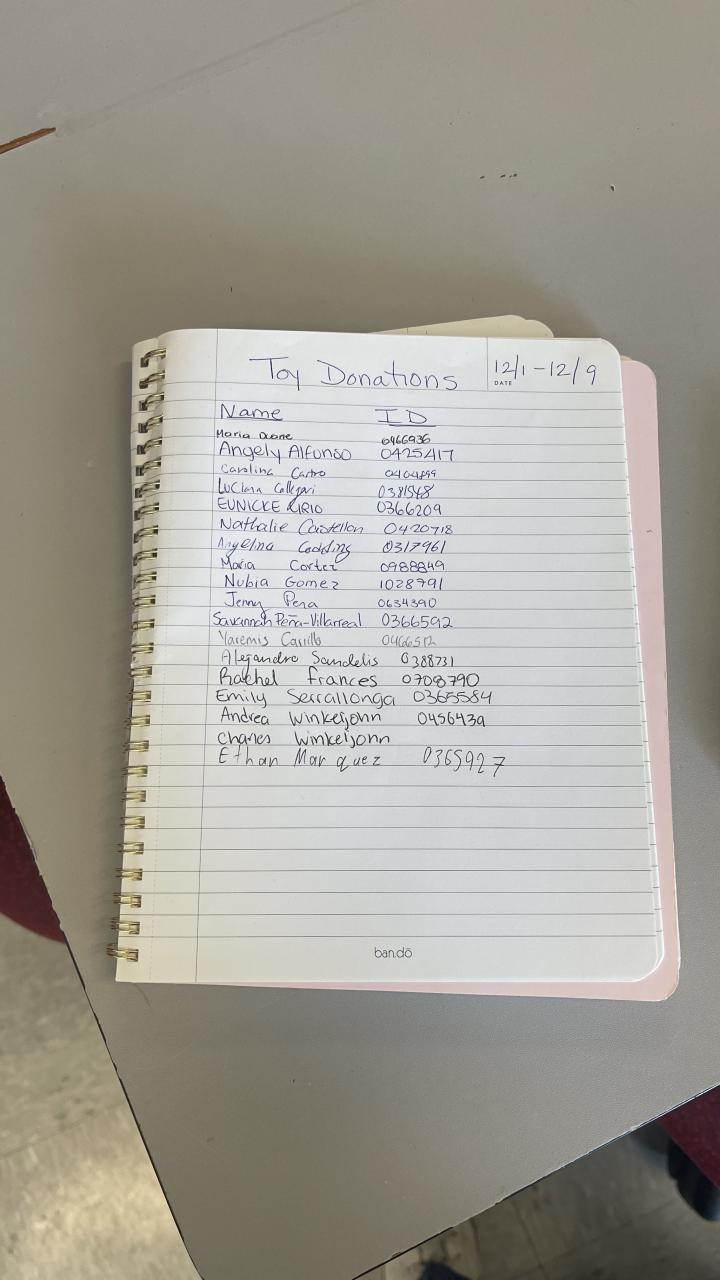 Toy Donations
12/1-12/9
DATE
Name ID
Maria 0466936
Angely Alfonso 0425417
Carolina Castro 0404899
Luciana Callegari
EUNICKE 0366209
Nathalie Castellon 0420718
Angelina 0317961
Maria Cortez 0988849
Nubia Gomez 1028791
Jenny Pena 0634390
Savannah Peña-Villarreal 0366592
Yaremis Carrillo 0466512
Alejandro Sandelis 0388731
Rachel Frances 0708790
Emily Serrallonga 0365584
Andrea Winkeljohn 0456439
Charles Winkeljonn
Ethan Marquez 0365927
ban.dō